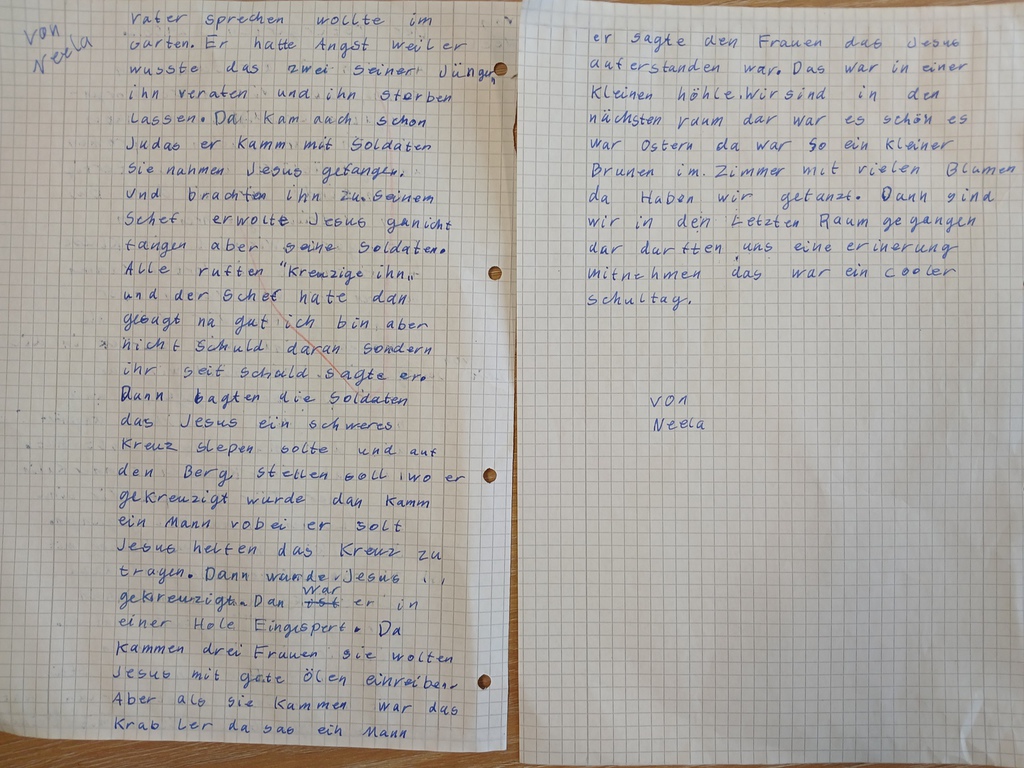 von
Neela
vater sprechen wollte im
Garten. Er hatte Angst weil er
wusste das zwei seiner Jünger
ihn veraten und ihn sterben
lassen. Da kam auch schon
Judas er kamm mit Soldaten
Sie nahmen Jesus gefangen.
und brachten ihn zu seinem
Schef. er wolte Jesus ganicht
fangen aber seine Soldaten.
Alle ruften "Kreuzige ihn"
und der Schef hate dan
gesagt na gut ich bin aber
nicht Schuld daran sondern
ihr seit schuld sagte er.
Dann sagten die Soldaten
das Jesus ein schweres
Kreuz slepen solte und auf
den Berg stellen soll wo er
gekreuzigt wurde dan kamm
ein Mann vobei er solt
Jesus helfen das Kreuz zu
tragen. Dann wurde Jesus
gekreuzigt. Dan ist war er in
einer Hole Eingespert. Da
kammen drei Frauen sie wolten
Jesus mit gute Ölen einreiben.
Aber als sie kammen war das
Krab ler da sas ein Mann
er sagte den Frauen das Jesus
auferstanden war. Das war in einer
kleinen höhle. Wir sind in den
nächsten raum dar war es schön es
war Ostern da war so ein kleiner
Brunen im Zimmer mit vielen Blumen
da Haben wir getanzt. Dann sind
wir in den Letzten Raum gegangen
dar durften uns eine erinerung
mitnehmen das war ein cooler
schultag.
von
Neela